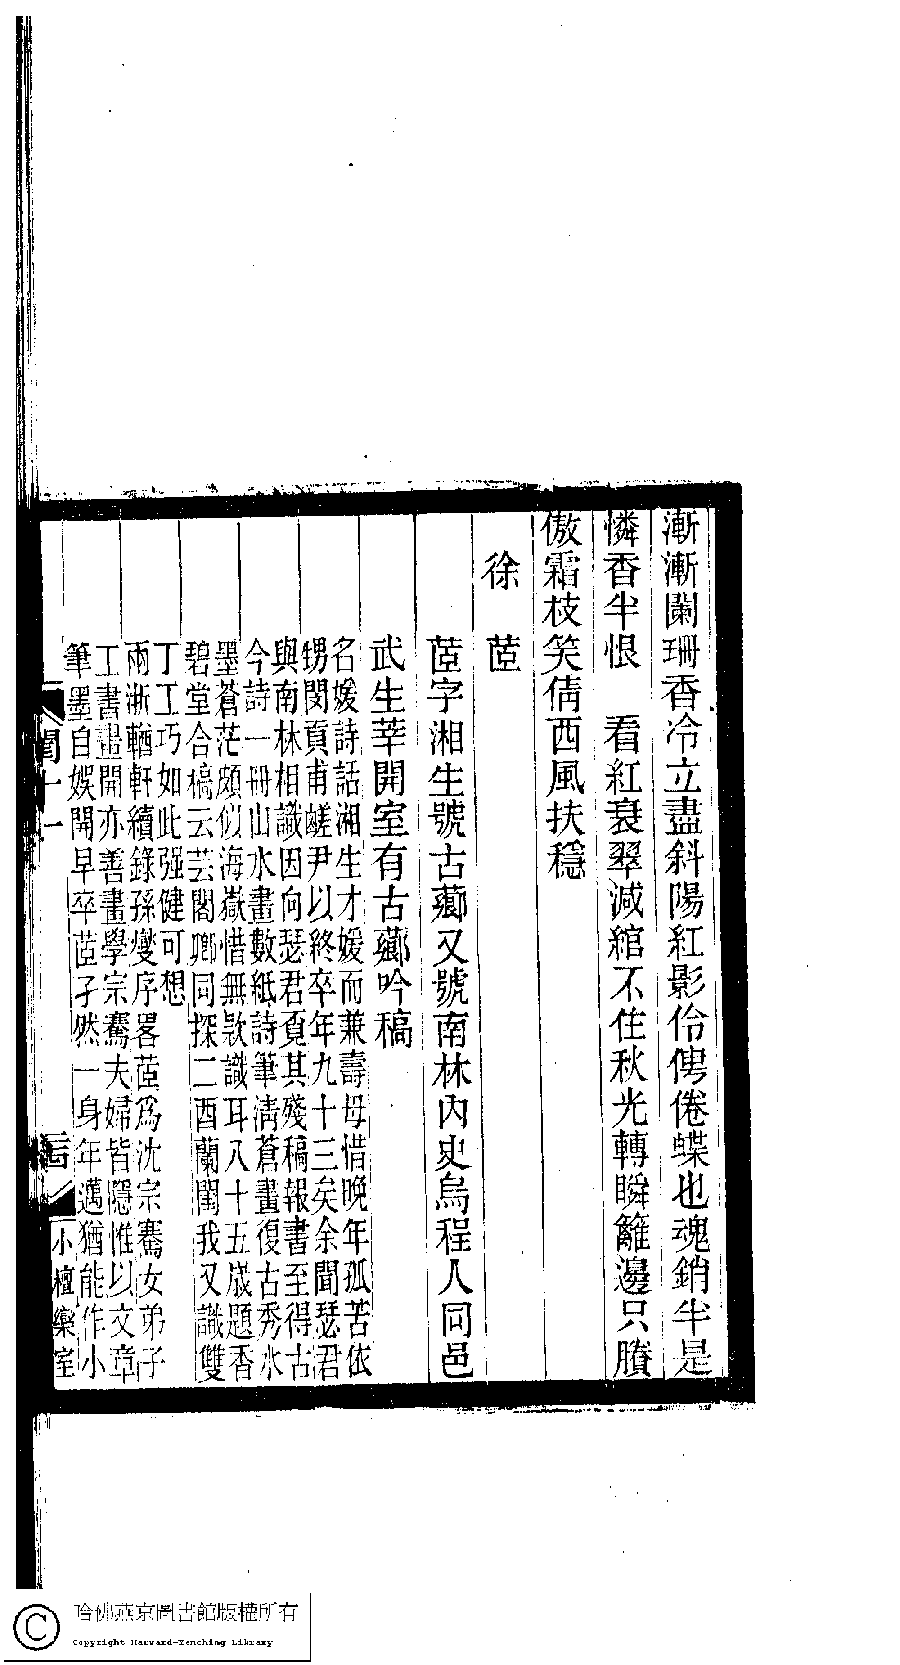 漸漸闌珊香冷立盡斜陽紅影伶俜倦蝶也魂銷半是
憐香半恨　看紅衰翠減綰不住秋光轉瞬籬邊只賸
傲霜枝笑倩西風扶穩
徐　茝
茝字湘生號古薌又號南林內史烏程人同邑
武生莘開室有古薌吟稿
名媛詩話湘生才媛而兼壽母惜晚年孤苦依
甥閔貢甫鹺尹以終卒年九十三矣余聞瑟君
與南林相識因向瑟君覓其殘稿報書至得古
今詩一冊山水畫數紙詩筆淸蒼畫復古秀水
墨蒼茫頗似海嶽惜無款識耳八十五歲題香
碧堂合槁云芸閣卿同探二酉蘭閨我又識雙
丁工巧如此强健可想
兩浙輶軒續錄孫燮序畧茝爲沈宗騫女弟子
工書畫開亦善畫學宗騫夫婦皆隱惟以文章
筆墨自娛開早卒茝孑然一身年邁猶能作小
閨十一
小檀欒室
哈佛燕京圖書館版權所有
Copyright Harvard-Yenching Library